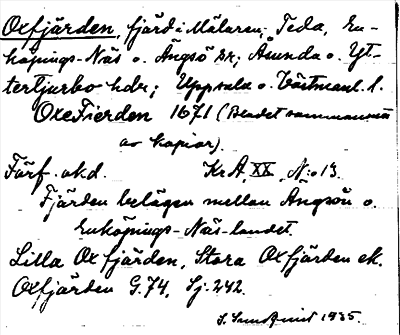 Oxfjärden, fjärd i Mälaren; Teda, En-
köpings-Näs o. Ängsö sk; Åsunda o. Yt-
tertjurbo hdr; Uppsala o. Västmanl. l.
OxeFierden 1671 (Bladet sammansatt
av kopior).
Förf. okd. KrA, XX, N:o 13.
Fjärden belägen mellan Ängsön o.
Enköpings-Näs-landet.
Lilla Oxfjärden, Stora Oxfjärden ek.
Oxfjärden G.74, Sj. 242.
1935.